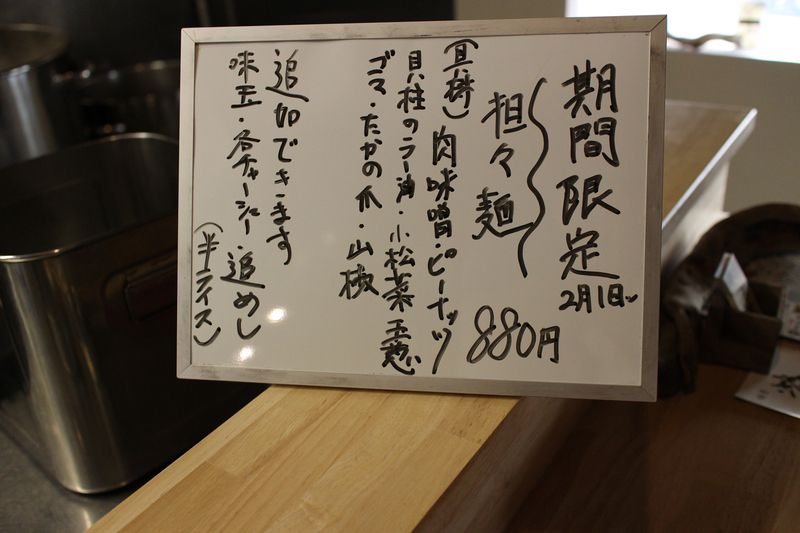 期間限定
2月1日〜
担々麺
880円
(具材)肉味噌・ピーナッツ
貝柱のラー油・小松菜 玉葱
ゴマ・たかの爪・山椒
追加できます
味玉・各チャーシュー・追めし
(半ライス)